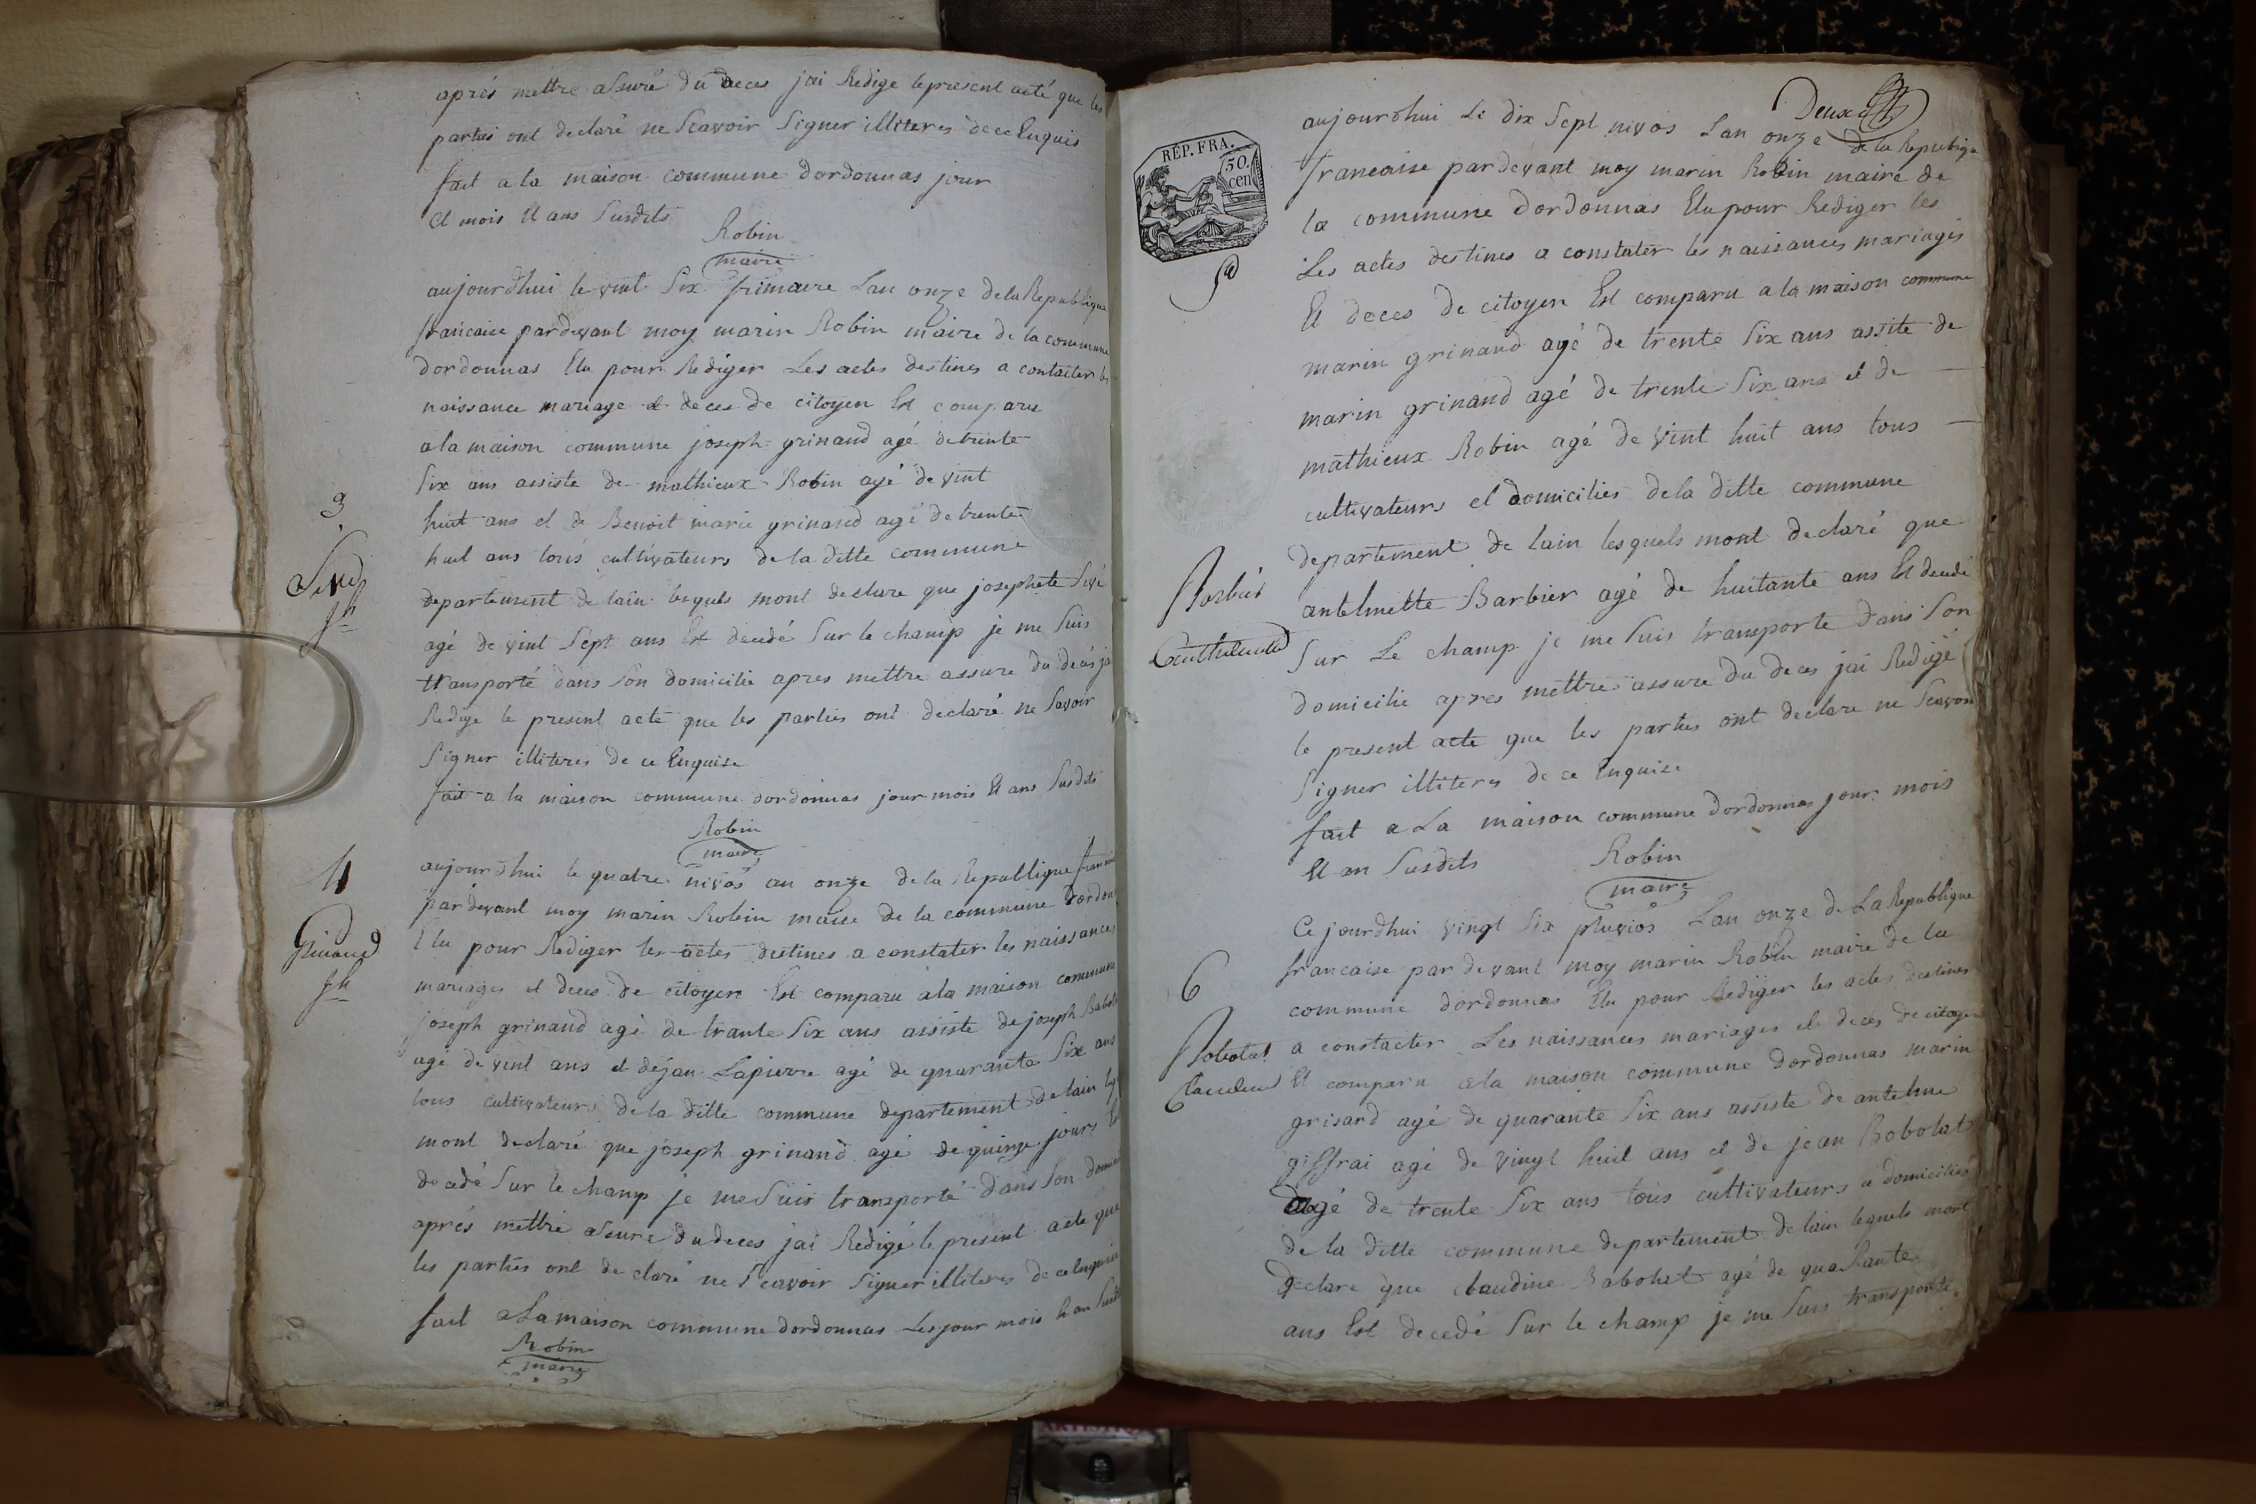 après mettre assuré du deces jai Redige le present acté que les
parties ont declaré ne Scavoir Signer illiteres de ce Enquis
fait a la maison commune dordonnas jour
et mois Et ans Susdits
Robin
maire
aujourdhui le vint Six frimaire Lan onze de la Republique
francaise pardevant moy marin Robin maire de la commune
dordonnas Elu pour Rediger Les actes destines a contater les
naissance mariage et deces de citoyen Est comparu
a la maison commune joseph grinand agé de trente
Six ans assiste de mathieux Robin agé de vint
3
huit ans et de Benoit marie grinand agé de trente
huit ans tous cultivateurs de la ditte commune
departement de lain lequels mont declare que josephete Sivé
agé de vint Sept ans Est decedé Sur le champ je me Suis
transporté dans Son domicilie apres mettre assure du deces jai
Redige le present acte que les parties ont declaré ne Savoir
Signer illiteres de ce Enquise
fait a la maison commune dordonnas jour mois Et ans Susdits
Robin
maire
4
aujourdhui le quatre nivôs an onze de la Republique
pardevant moy marin Robin maire de la commune dordon
Grinand
jh
Elu pour Rediger les actes destines a constater les naissances
mariages et deces de citoyen Est comparu a la maison commune
joseph grinand agé de trante Six ans assiste de joseph Babolat
agé de vint ans et dejan Lapierre agé de quarante Six ans
tous cultivateurs de la ditte commune departement de lain
mont declaré que joseph grinand agé de quinze jours Est
decedé Sur le champ je me Suis transporté dans Son domi
aprés mettre assure du deces jai Redigé le present acte que
les parties ont declaré ne Scavoir Signer illiteres de ce Enquise
fait a La maison commune dordonnas Les jour mois Et an Susdit
Robin
maire
Deux
RÉP. FRA.
50
cen
aujourdhui Le dix Sept nivos Lan onze de la Republiqe
francaise pardevant moy marin Robin maire de
la commune dordonnas Elu pour Rediger les
Les actes destines a constater les naissances mariages
Et deces de citoyen Est comparu a la maison commune
marin grinand agé de trente Six ans assite de
marin grinand agé de trente Six ans et de
mathieux Robin agé de vint huit ans tous
cultivateurs et domicilies de la ditte commune
departement de lain lesquels mont declaré que
Barbier
antelmette Barbier agé de huitante ans Est decedé
Sur Le champ je me Suis transporte dans Son
domicilie apres mettre assure du deces jai Redigé
le present acte que les parties ont declare ne Scavoir
Signer illiteres de ce Enquise
fait a La maison commune dordonnas jour mois
Et an Susdits
Robin
maire
Ce jourdhui vingt Six pluvios Lan onze de La Republique
francaise par devant moy marin Robin maire de la
6
commune dordonnas Elu pour Rediger les actes destines
Bobolat
a constater Les naissances mariages et deces de citoyen
Claudine
Et comparu a la maison commune dordonnas marin
grisard agé de quarante Six ans assiste de antelme
giffrai agé de vingt huit ans et de jean Bobolat
agé de trente Six ans tous cultivateurs a domicilies
de la ditte commune departement de lain lequels mont
declare que claudine Babolat agé de quaRante
ans Est decedé Sur le champ je me Suis transporté